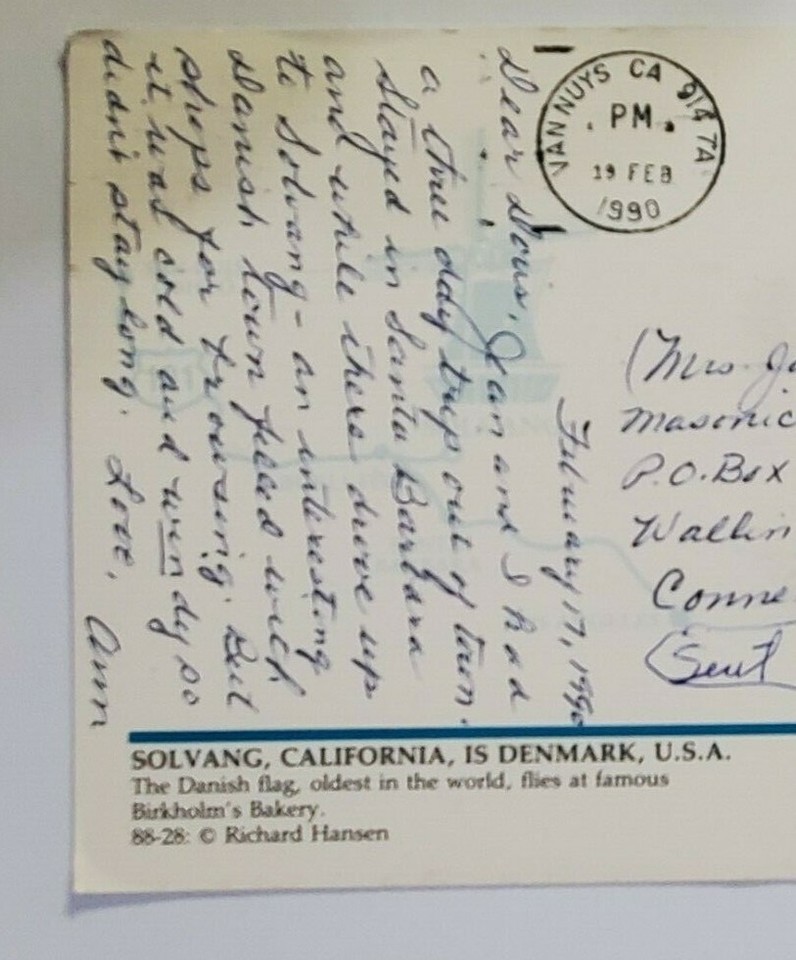 February 17, 1990
Dear Doris, Jean and I had
a three day trip out of town.
Stayed in Santa Barbara
and while there drove up
to Solvang - an interesting
Danish town filled with
shops for browsing. But
it was cold and windy so
didn't stay long. Love,
Ann
VAN NUYS CA 914 7A
PM
19 FEB
1990
(Mrs. Ja
Masonic
P.O. Box
Wallin
Conne
Sent
SOLVANG, CALIFORNIA, IS DENMARK, U.S.A.
The Danish flag, oldest in the world, flies at famous
Birkholm's Bakery.
88-28: © Richard Hansen